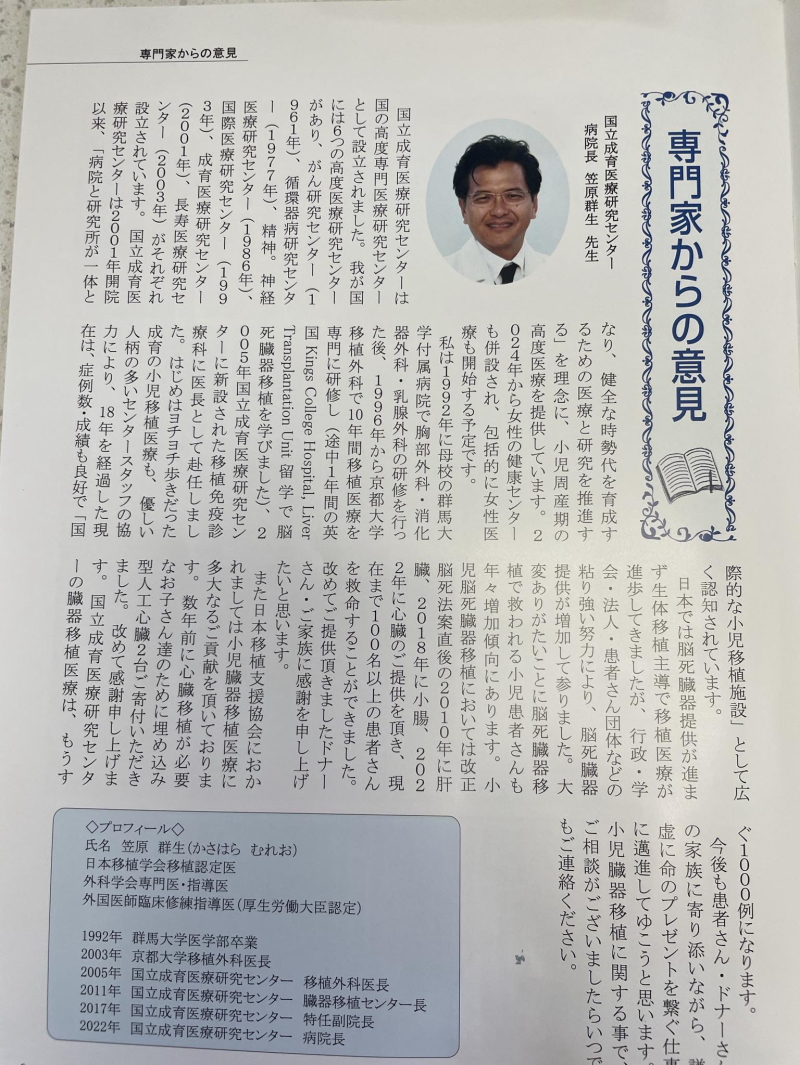 専門家からの意見
専門家からの意見
国立成育医療研究センター
病院長 笠原群生 先生
国立成育医療研究センターは
国の高度専門医療研究センター
として設立されました。我が国
には6つの高度医療研究センター
があり、がん研究センター（1
961年）、循環器病研究センタ
ー（1977年）、精神。神経
医療研究センター（1986年）、
国際医療研究センター（199
3年）、成育医療研究センター
（2001年）、長寿医療研究セ
ンター（2003年）がそれぞれ
設立されています。国立成育医
療研究センターは2001年開院
以来、「病院と研究所が一体と
なり、健全な時勢代を育成す
るための医療と研究を推進す
る」を理念に、小児周産期の
高度医療を提供しています。2
024年から女性の健康センター
も併設され、包括的に女性医
療も開始する予定です。
私は1992年に母校の群馬大
学付属病院で胸部外科・消化
器外科・乳腺外科の研修を行っ
た後、1996年から京都大学
移植外科で10年間移植医療を
専門に研修し（途中1年間の英
国 Kings College Hospital, Liver
Transplantation Unit 留学で脳
死臓器移植を学びました）、2
005年国立成育医療研究セン
ターに新設された移植免疫診
療科に医長として赴任しまし
た。はじめはヨチヨチ歩きだった
成育の小児移植医療も、優しい
人柄の多いセンタースタッフの協
力により、18年を経過した現
在は、症例数・成績も良好で「国
際的な小児移植施設」として広
く認知されています。
日本では脳死臓器提供が進ま
ず生体移植主導で移植医療が
進歩してきましたが、行政・学
会・法人・患者さん団体などの
粘り強い努力により、脳死臓器
提供が増加して参りました。大
変ありがたいことに脳死臓器移
植で救われる小児患者さんも
年々増加傾向にあります。小
児脳死臓器移植においては改正
脳死法案直後の2010年に肝
臓、2018年に小腸、202
2年に心臓のご提供を頂き、現
在まで100名以上の患者さん
を救命することができました。
改めてご提供頂きましたドナー
さん・ご家族に感謝を申し上げ
たいと思います。
また日本移植支援協会におか
れましては小児臓器移植医療に
多大なるご貢献を頂いておりま
す。数年前に心臓移植が必要
なお子さん達のために埋め込み
型人工心臓2台ご寄付いただき
ました。改めて感謝申し上げま
す。国立成育医療研究センタ
ーの臓器移植医療は、もうす
ぐ1000例になります。
今後も患者さん・ドナーさん
の家族に寄り添いながら、謙
虚に命のプレゼントを繋ぐ仕事
に邁進してゆこうと思います。
小児臓器移植に関する事で、
ご相談がございましたらいつで
もご連絡ください。
◇プロフィール◇
氏名 笠原 群生（かさはら むれお）
日本移植学会移植認定医
外科学会専門医・指導医
外国医師臨床修練指導医（厚生労働大臣認定）
1992年 群馬大学医学部卒業
2003年 京都大学移植外科医長
2005年 国立成育医療研究センター 移植外科医長
2011年 国立成育医療研究センター 臓器移植センター長
2017年 国立成育医療研究センター 特任副院長
2022年 国立成育医療研究センター 病院長